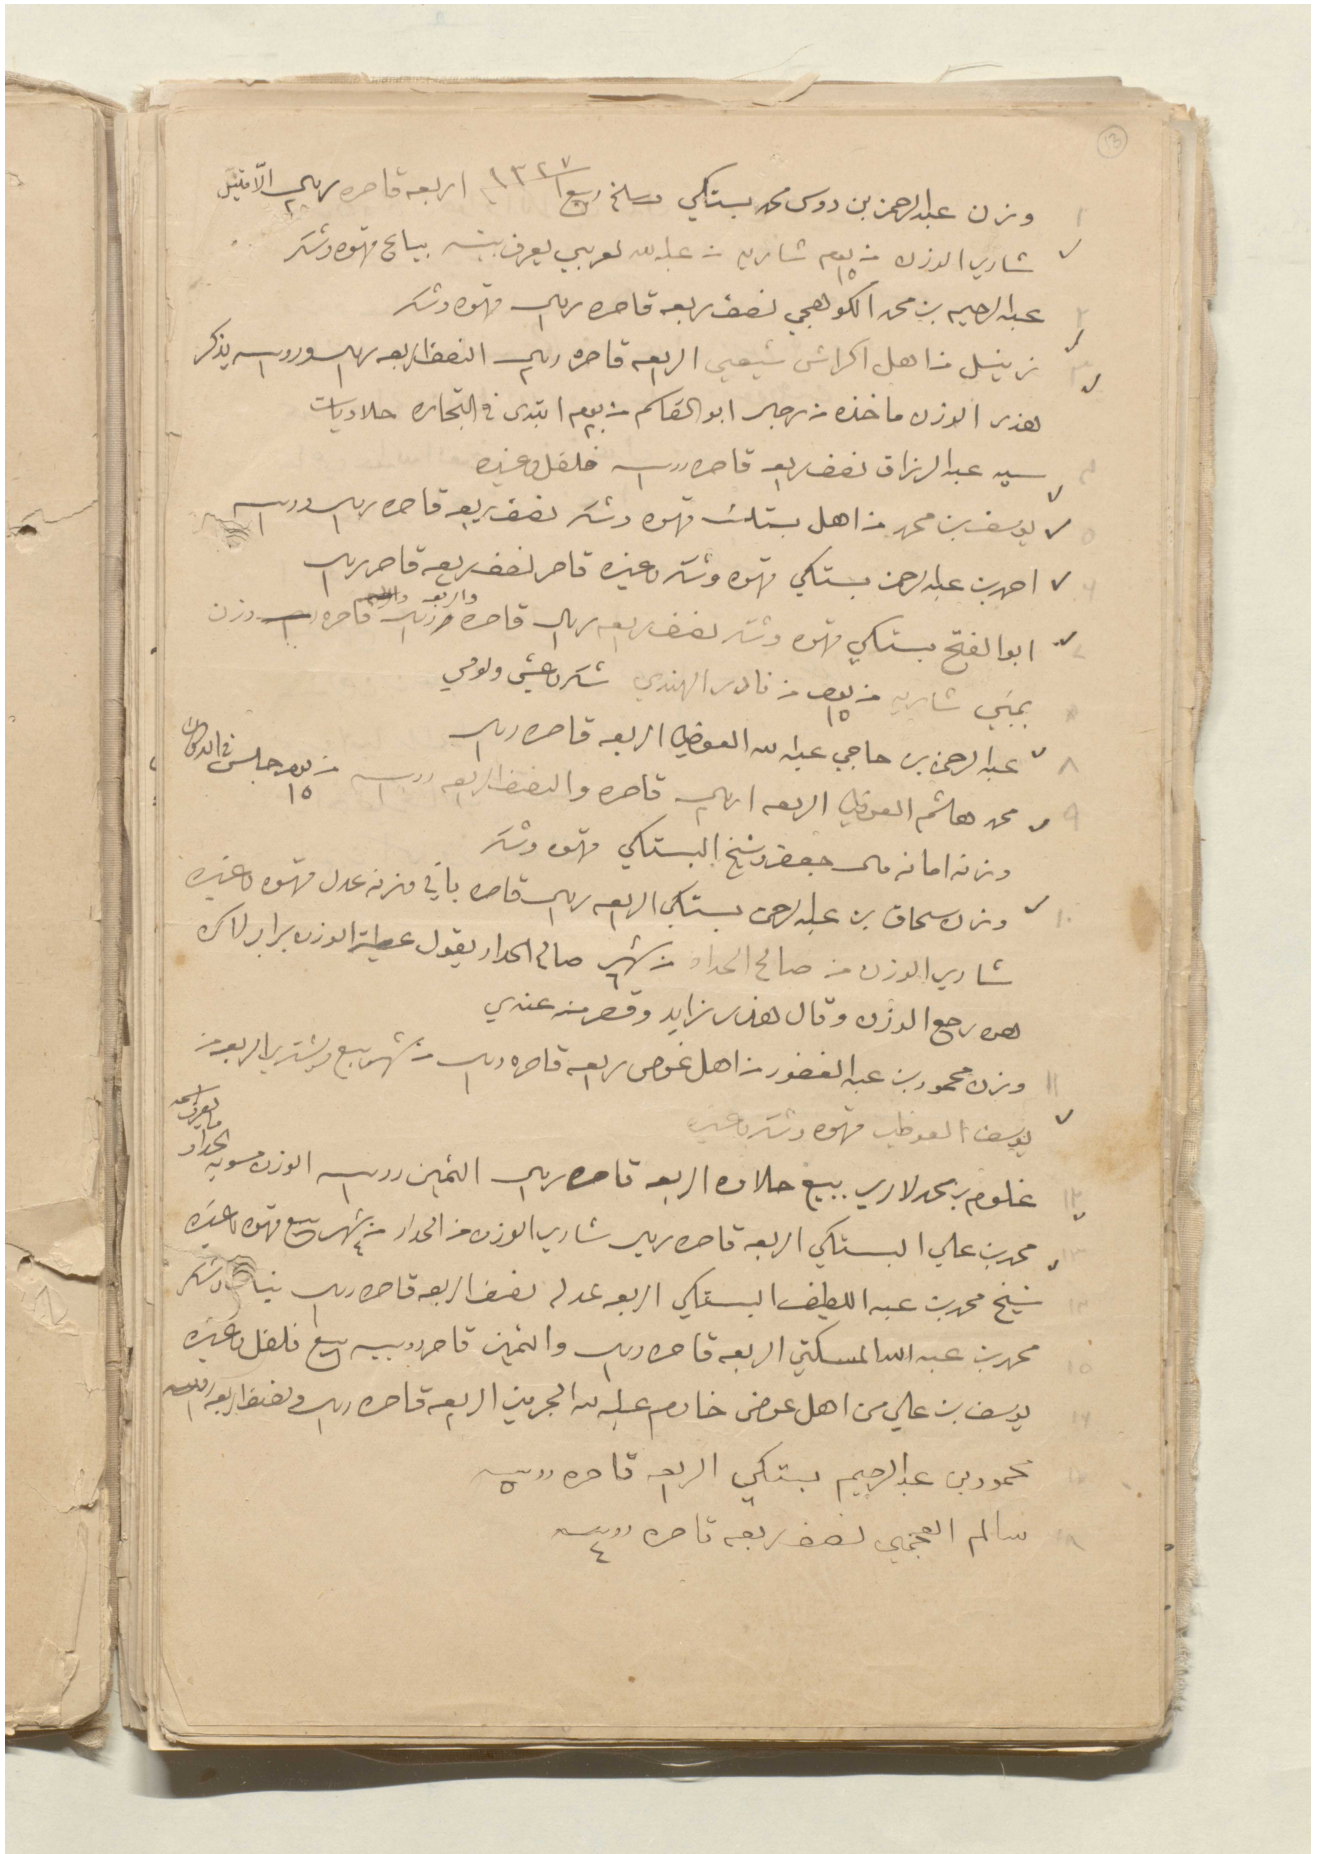 13
١ وزن عبدالرحمن بن دوس محمد بستكي سلخ ربيع ١٣٢٧ اربعه قاصره ريال الا
شاري الوزن من يوم ١٥ شاريه من عبدالله لعريبي يعرف بيته بياع قهوه وشكر
٢ عبدالرحيم بن محمد الكوهجي نصف ربعه قاصره ريال قهوه وشكر
٣ زينل من اهل اكراش شيعيي الربعه قاصره ريال النصف اربعه ريال وروبيه يذكر
هذه الوزن ماخذه من رجب ابوالقاسم من يوم ابتدى في التجاره حلاويات
٤ سيد عبدالرزاق نصف ربعه قاصره روبيه فلفل وغيره
٥ يوسف بن محمد من اهل بستك قهوه وشكر نصف ربعه قاصره ريال وروبيه
٦ احمد بن عبدالرحمن بستكي قهوه وشكر وغيره قاصر نصف ربعه قاصر ريال
والربعه
٧ ابوالفتح بستكي قهوه وشكر نصف ربعه ريال قاصره قاصره وزن
بمبئي شاريه من يوم ١٥ من نادر الهندي شكر وعيش ولومي
٨ عبدالرحمن بن حاجي عبدالله العوضي الربعه قاصره ريال
٩ محمد هاشم العوضي الربعه ريال قاصره والنصف الربعه روبيه من يوم ١٥ جلس في الدكان
وزنه امانه مال جعفر وشيخ البستكي قهوه وشكر
١٠ وزن سحاق بن عبدالرحمن بستكي الربعه ريال قاصره باقي وزنه عدل قهوه وغيره
شاري الوزن من صالح الحداد من شهر ٦ صالح الحداد يقول عطيته الوزن برابر لاكن
هو رجع الوزن وقال هذه زايد وقصر منه عندي
١١ وزن محمود بن عبدالغفور من اهل عوض ربعه قاصره ريال من شهر يبيع ويشتري الربعه من
يوسف العوضي قهوه وشكر وغيره
ما يعرف اسمه
١٢ غلوم بن محمد لاري يبيع حلاوه الربعه قاصره ريال الثمين روبيه الوزن مسويه الحداد
١٣ محمد بن علي البستكي الربعه قاصره ريال شاري الوزن من الحداد من ٤ شهر يبيع قهوه وغيره
١٤ شيخ محمد بن عبداللطيف البستكي اربعه عدله نصف الربعه قاصره ريال وشكر
١٥ محمد بن عبدالله المسكتي الربعه قاصره ريال والثمين قاصر روبيه يبيع فلفل وغيره
١٦ يوسف بن علي من اهل عوض خادم عبدالله الربعه قاصره ريال ونصف اربعه
١٧ محمود بن عبدالرحيم بستكي الربعه قاصره روبيه ٥
١٨ سالم العجمي نصف ربعه قاصره روبيه ٤